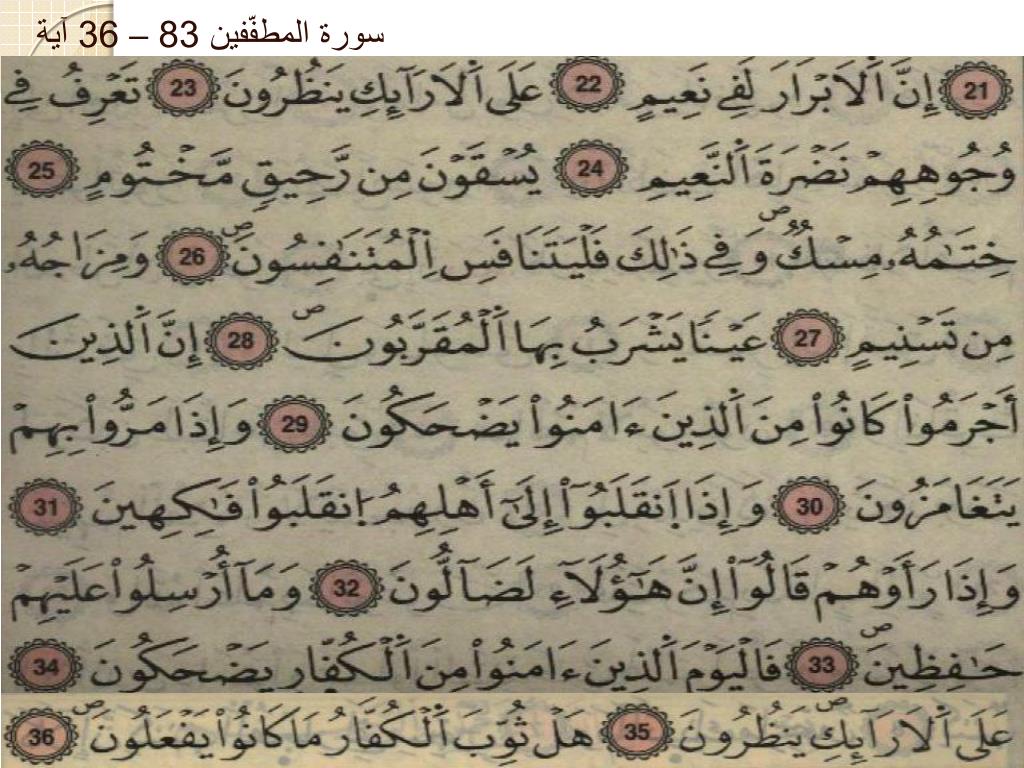 سورة المطفّفين 83 – 36 آية
21 إِنَّ اَ۬لَابْرَارَ لَفِے نَعِيمٍ 22 عَلَي اَ۬لَارَآئِكِ يَنظُرُونَ 23 تَعْرِفُ فِے
وُجُوهِهِمْ نَضْرَةَ اَ۬لنَّعِيمِ 24 يُسْقَوْنَ مِن رَّحِيقٍ مَّخْتُومٍ 25
خِتَٰمُهُۥ مِسْكٌۖ وَفِے ذَٰلِكَ فَلْيَتَنَافَسِ اِ۬لْمُتَنَٰفِسُونَۖ 26 وَمِزَاجُهُۥ
مِن تَسْنِيمٍ 27 عَيْناٗ يَشْرَبُ بِهَا اَ۬لْمُقَرَّبُونَۖ 28 إِنَّ اَ۬لذِينَ
أَجْرَمُواْ كَانُواْ مِنَ اَ۬لذِينَ ءَامَنُواْ يَضْحَكُونَ 29 وَإِذَا مَرُّواْ بِهِمْ
يَتَغَامَزُونَ 30 وَإِذَا اَ۪نقَلَبُوٓاْ إِلَيٰٓ أَهْلِهِمُ اُ۪نقَلَبُواْ فَٰكِهِينَ 31
وَإِذَا رَأَوْهُمْ قَالُوٓاْ إِنَّ هَٰٓؤُلَآءِ لَضَآلُّونَ 32 وَمَآ أُرْسِلُواْ عَلَيْهِمْ
حَٰفِظِينَۖ 33 فَالْيَوْمَ اَ۬لذِينَ ءَامَنُواْ مِنَ اَ۬لْكُفّ۪ارِ يَضْحَكُونَ 34
عَلَي اَ۬لَارَآئِكِ يَنظُرُونَۖ 35 هَلْ ثُوِّبَ اَ۬لْكُفَّارُ مَا كَانُواْ يَفْعَلُونَۖ 36